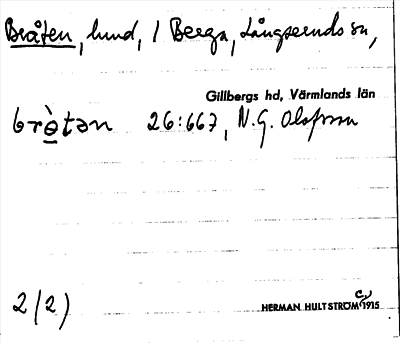 Bråten, lund, 1 Berga, Långseruds sn,
Gillbergs hd, Värmlands län
brò̱tən 26:667, N.G. Olofsson
2(2)
HERMAN HULTSTRÖM c) 1915